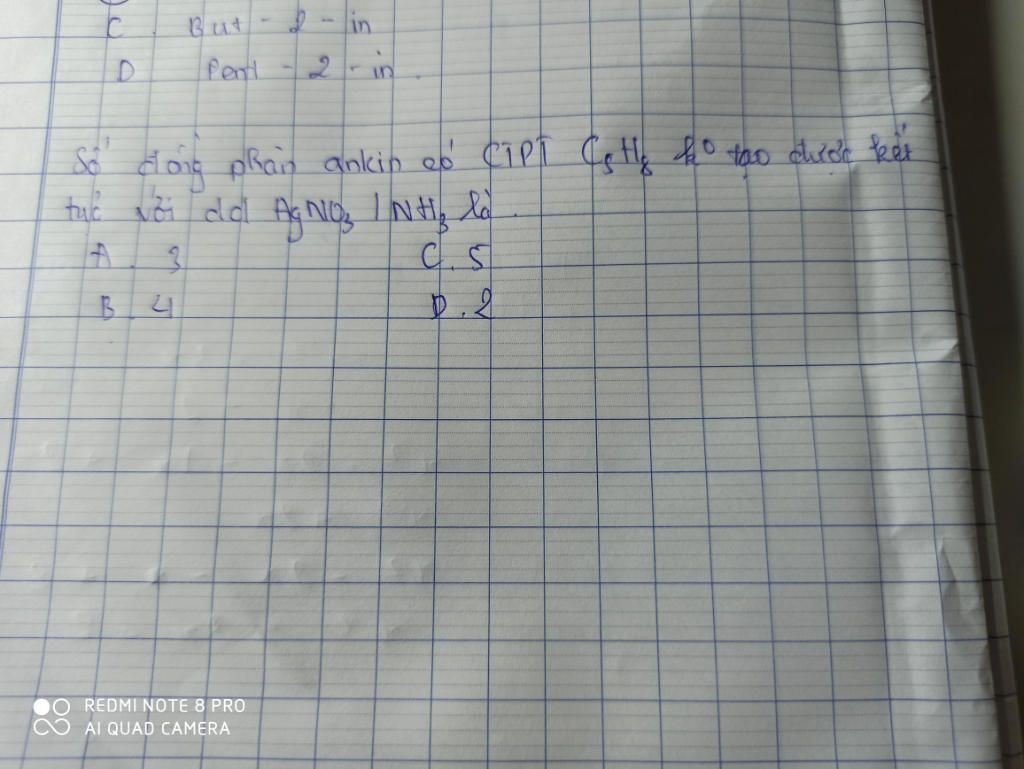 C. But - 2 - in
D Pent - 2 - in.
Số đồng phân ankin có CTPT C₅H₈ ko tạo được kết
tủa với dd AgNO₃ / NH₃ là.
A. 3 C. 5
B. 4 D. 2
REDMI NOTE 8 PRO
AI QUAD CAMERA